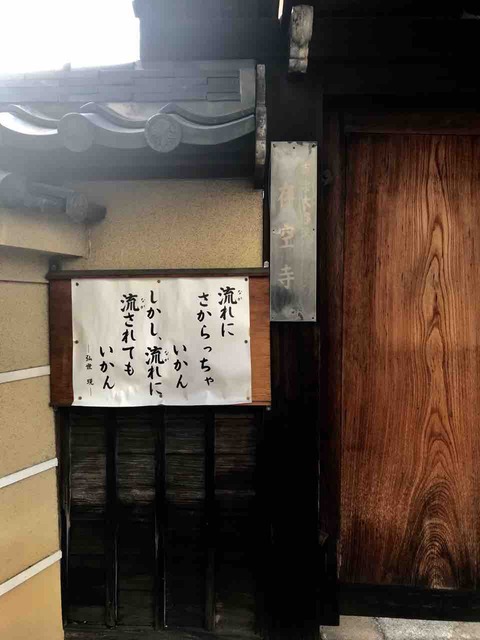 流れに
さからっちゃ
いかん
しかし、流れに、
流されても
いかん
―弘世 現―
空寺